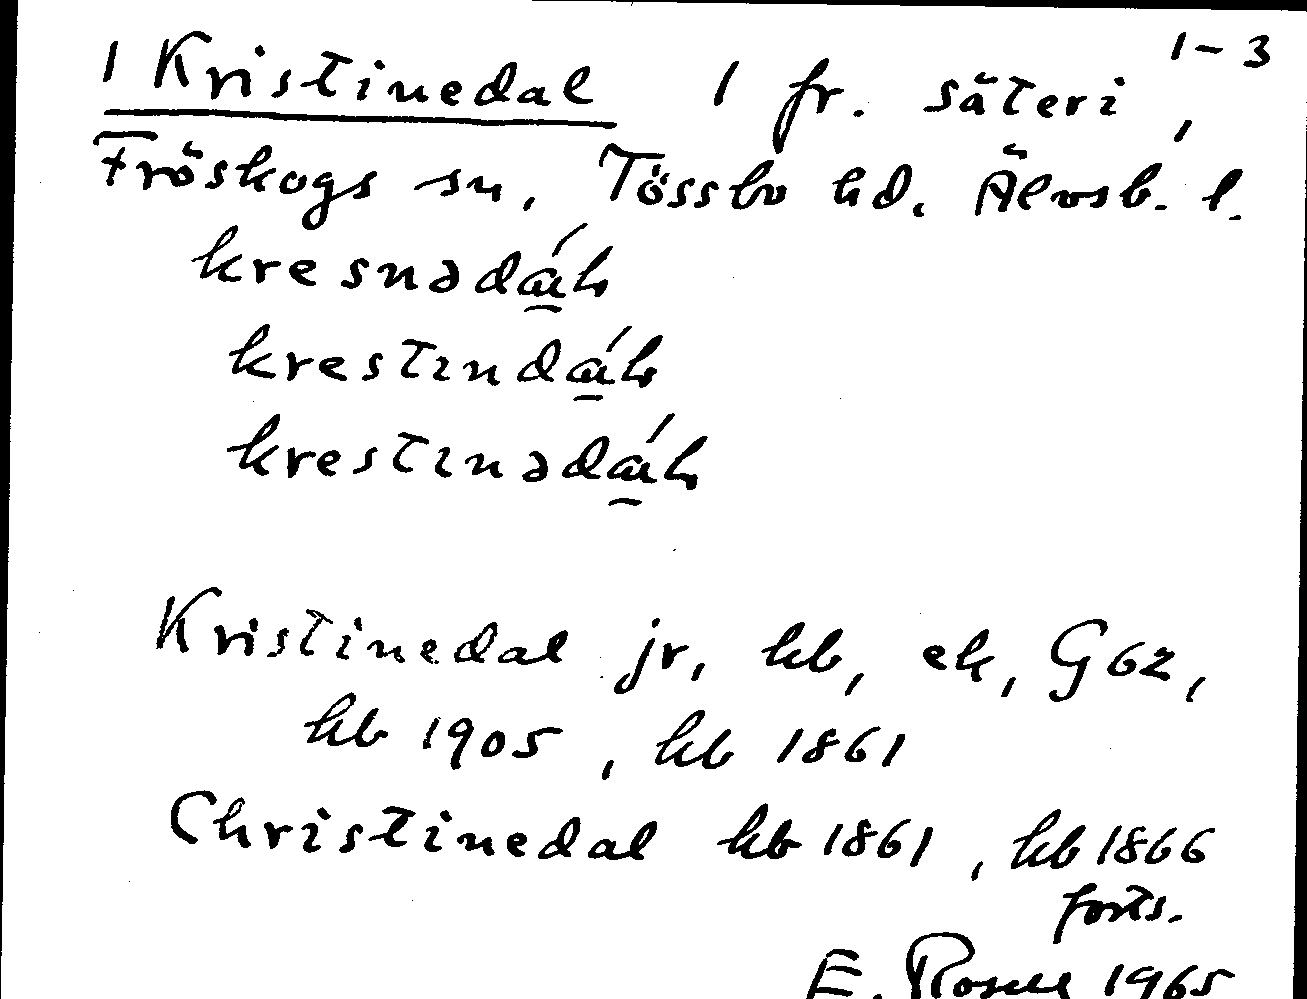 1-3
1 Kristinedal 1 fr. säteri,
Fröskogs sn, Tössbo hd. Älvsb. l.
kresnədáɩ̵
krestındáɩ̵
krestınədáɩ̵
Kristinedal jr, kb, ek, G62,
kb 1905, kb 1861
Christinedal kb 1861, kb 1866
forts.
E. Rosell 1965